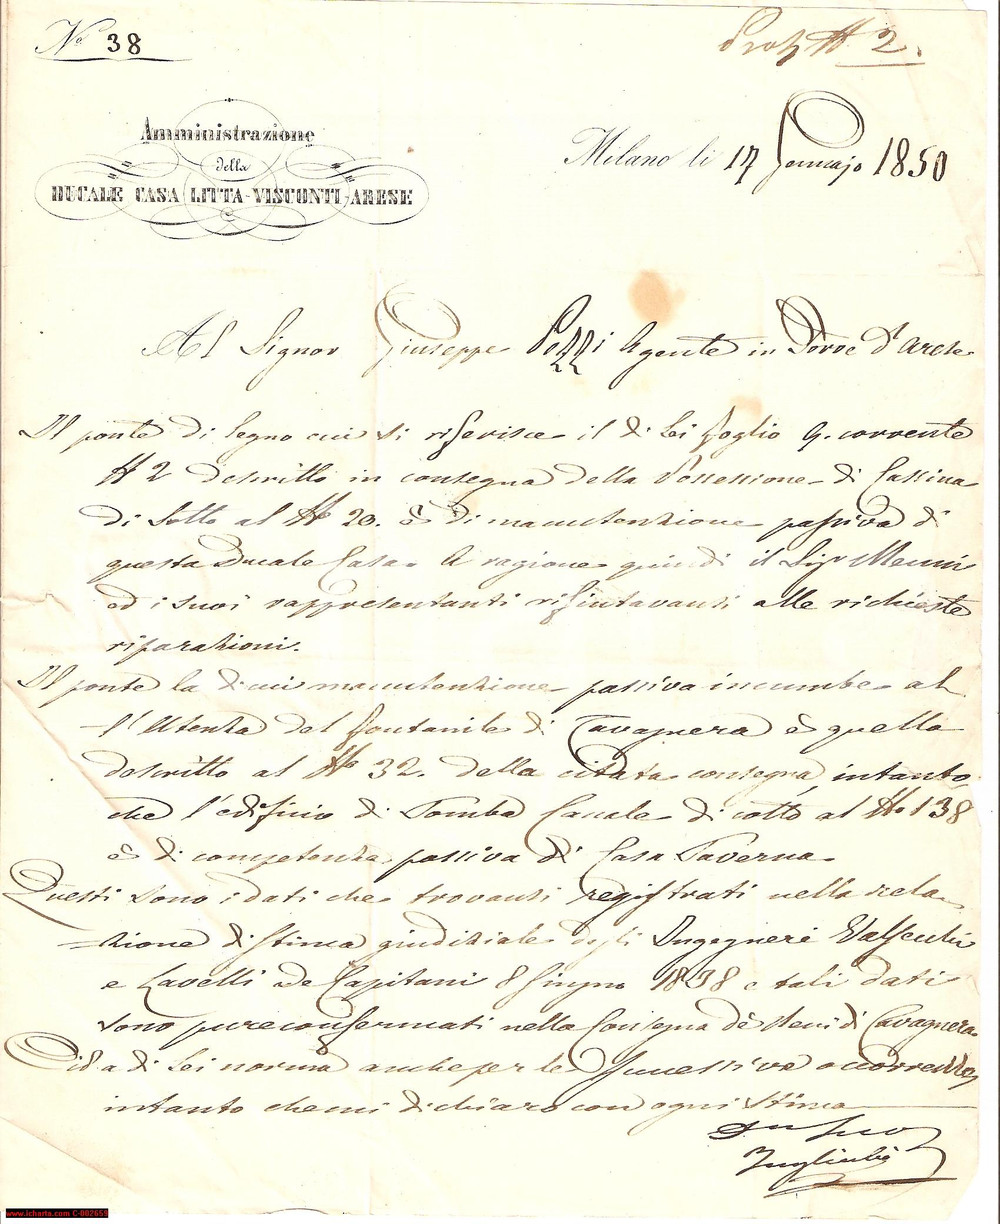 No 38
Prot N 2.
Amministrazione
della
DUCALE CASA LITTA-VISCONTI-ARESE
Milano li 17 Gennajo 1850
Al Signor Giuseppe Pozzi Agente in d'Arese
Il ponte di legno cui si riferisce il di Lei foglio 9. corrente
N 2 descritto in consegna della Possessione di Cassina
di Sotto al No 20. è di manutenzione passiva di
questa Ducale Casa. A ragione quindi il Sigr
ed i suoi rappresentanti rifiutavansi alle richieste
riparazioni.
Il ponte la di cui manutenzione passiva incumbe al
l'Utenza del fontanile di Cavagnera è quello
descritto al No 32. della citata consegna, intanto
che l'edificio di Tomba Canale di cotto al No 138
è di competenza passiva di Casa Taverna.
Questi sono i dati che trovansi registrati nella rela
zione di stima giudiziale degli Ingegneri
e Lavelli De Capitani 8 Giugno 1838 e tali dati
sono pure confermati nella Consegna de Beni di Cavagnera.
Ciò a di Lei norma anche per le successive occorrenze,
intanto che mi dichiaro con ogni stima
www.icharta.com C-002659